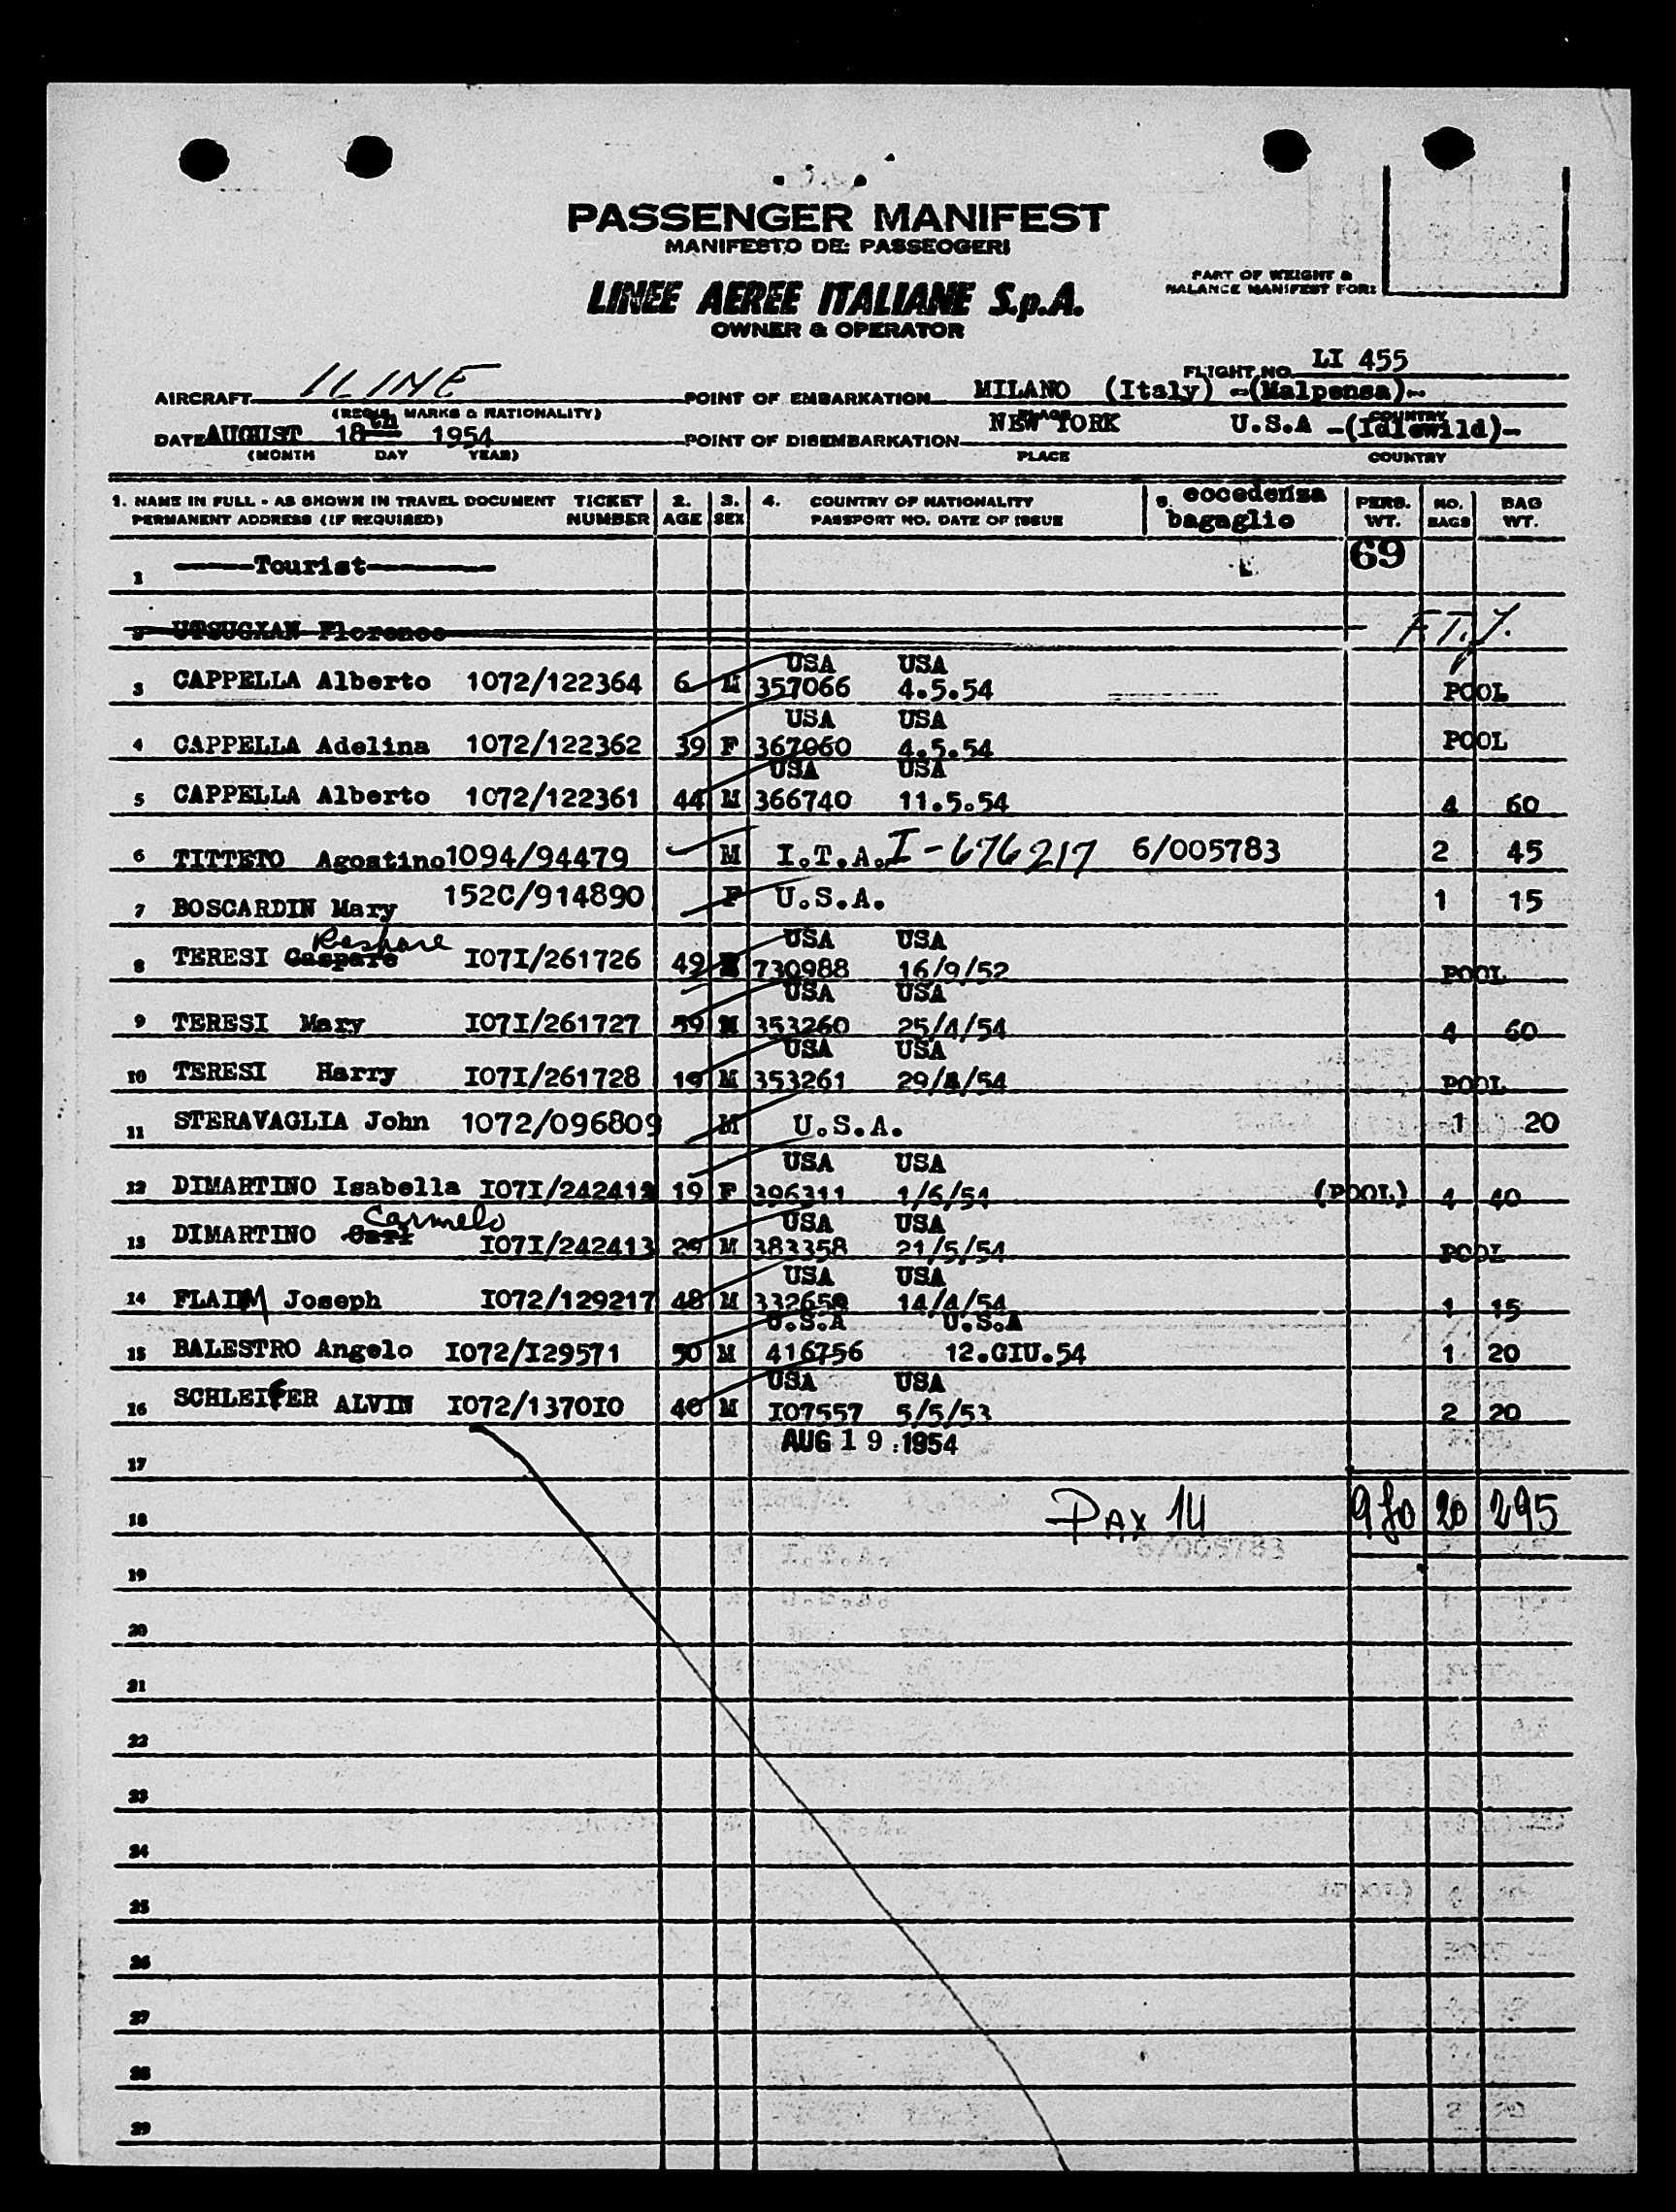 PASSENGER MANIFEST
MANIFESTO DE: PASSEOGERI
PART OF WEIGHT &
BALANCE MANIFEST FOR:
LINEE AEREE ITALIANE S.p.A.
OWNER & OPERATOR
FLIGHT NO. LI 455
AIRCRAFT ILINE POINT OF EMBARKATION MILANO (Italy) -(Malpensa)-
(REGIS. MARKS & NATIONALITY) PLACE COUNTRY
DATE AUGUST 18th 1954 POINT OF DISEMBARKATION NEW YORK U.S.A -(Idlewild)-
(MONTH DAY YEAR) PLACE COUNTRY
1. NAME IN FULL - AS SHOWN IN TRAVEL DOCUMENT TICKET 2. 3. 4. COUNTRY OF NATIONALITY 5. eccedenza PERS. NO. BAG
PERMANENT ADDRESS (IF REQUIRED) NUMBER AGE SEX PASSPORT NO. DATE OF ISSUE bagaglio WT. BAGS WT.
1 Tourist 69
2 UTSUGXAN Florence F.T.J.
USA USA
3 CAPPELLA Alberto 1072/122364 6 M 357066 4.5.54 POOL
USA USA
4 CAPPELLA Adelina 1072/122362 39 F 367060 4.5.54 POOL
USA USA
5 CAPPELLA Alberto 1072/122361 44 M 366740 11.5.54 4 60
6 TITTETO Agostino 1094/94479 M I.T.A. I-676217 6/005783 2 45
7 BOSCARDIN Mary 152C/914890 F U.S.A. 1 15
USA USA
8 TERESI Gaspare I07I/261726 49 730988 16/9/52 POOL
USA USA
9 TERESI Mary I07I/261727 59 M 353260 25/4/54 4 60
USA USA
10 TERESI Harry I07I/261728 19 M 353261 29/4/54 POOL
11 STERAVAGLIA John 1072/096809 M U.S.A. 1 20
USA USA
12 DIMARTINO Isabella I07I/242412 19 F 396311 1/6/54 (POOL) 4 40
Carmelo USA USA
13 DIMARTINO Carl I07I/242413 29 M 383358 21/5/54 POOL
USA USA
14 FLAIM Joseph I072/129217 48 M 332650 14/4/54 1 15
U.S.A U.S.A
15 BALESTRO Angelo I072/I29571 50 M 416756 12.GIU.54 1 20
USA USA
16 SCHLEIFER ALVIN I072/137010 40 M I07557 5/5/53 2 20
AUG 19 1954
17
18 PAX 14 980 20 295
19
20
21
22
23
24
25
26
27
28
29